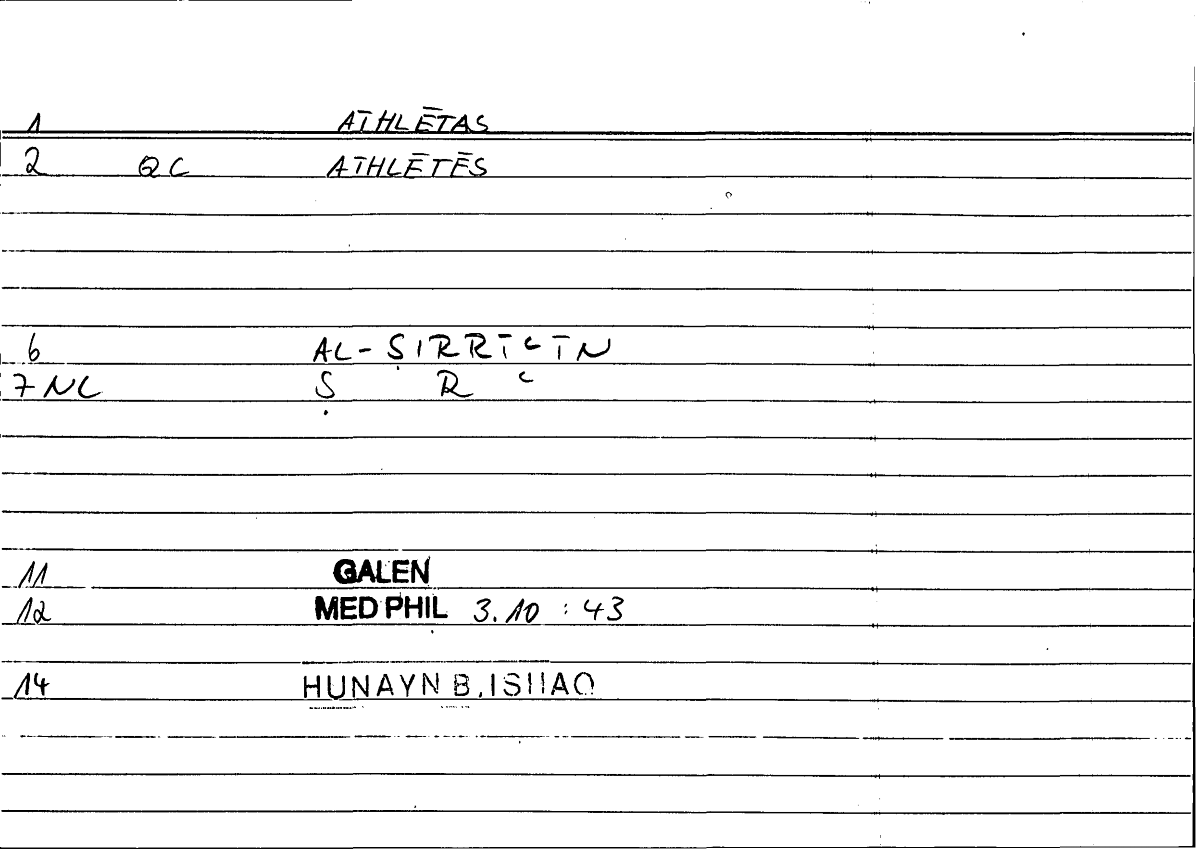 1 ATHLĒTAS
2 QC ATHLĒTĒS
6 AL-ṢIRRĪʿĪN
7 NC Ṣ R ʿ
11 GALEN
12 MED PHIL 3.10 : 43
14 HUNAYN B. ISHAQ